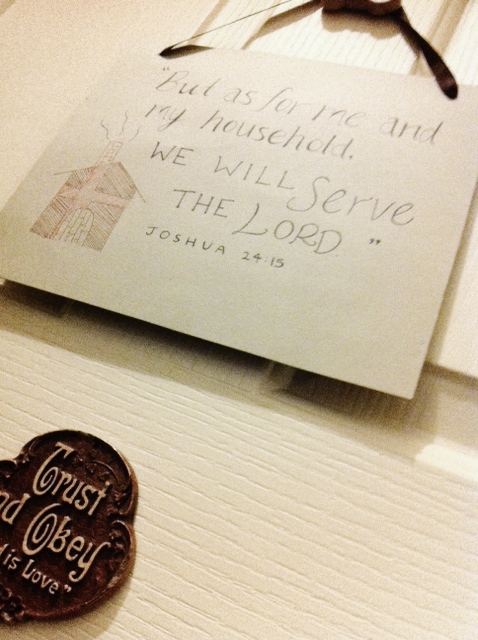 "But as for me and
my household,
WE WILL Serve
THE LORD"
JOSHUA 24:15
Trust
nd Obey
is Love"